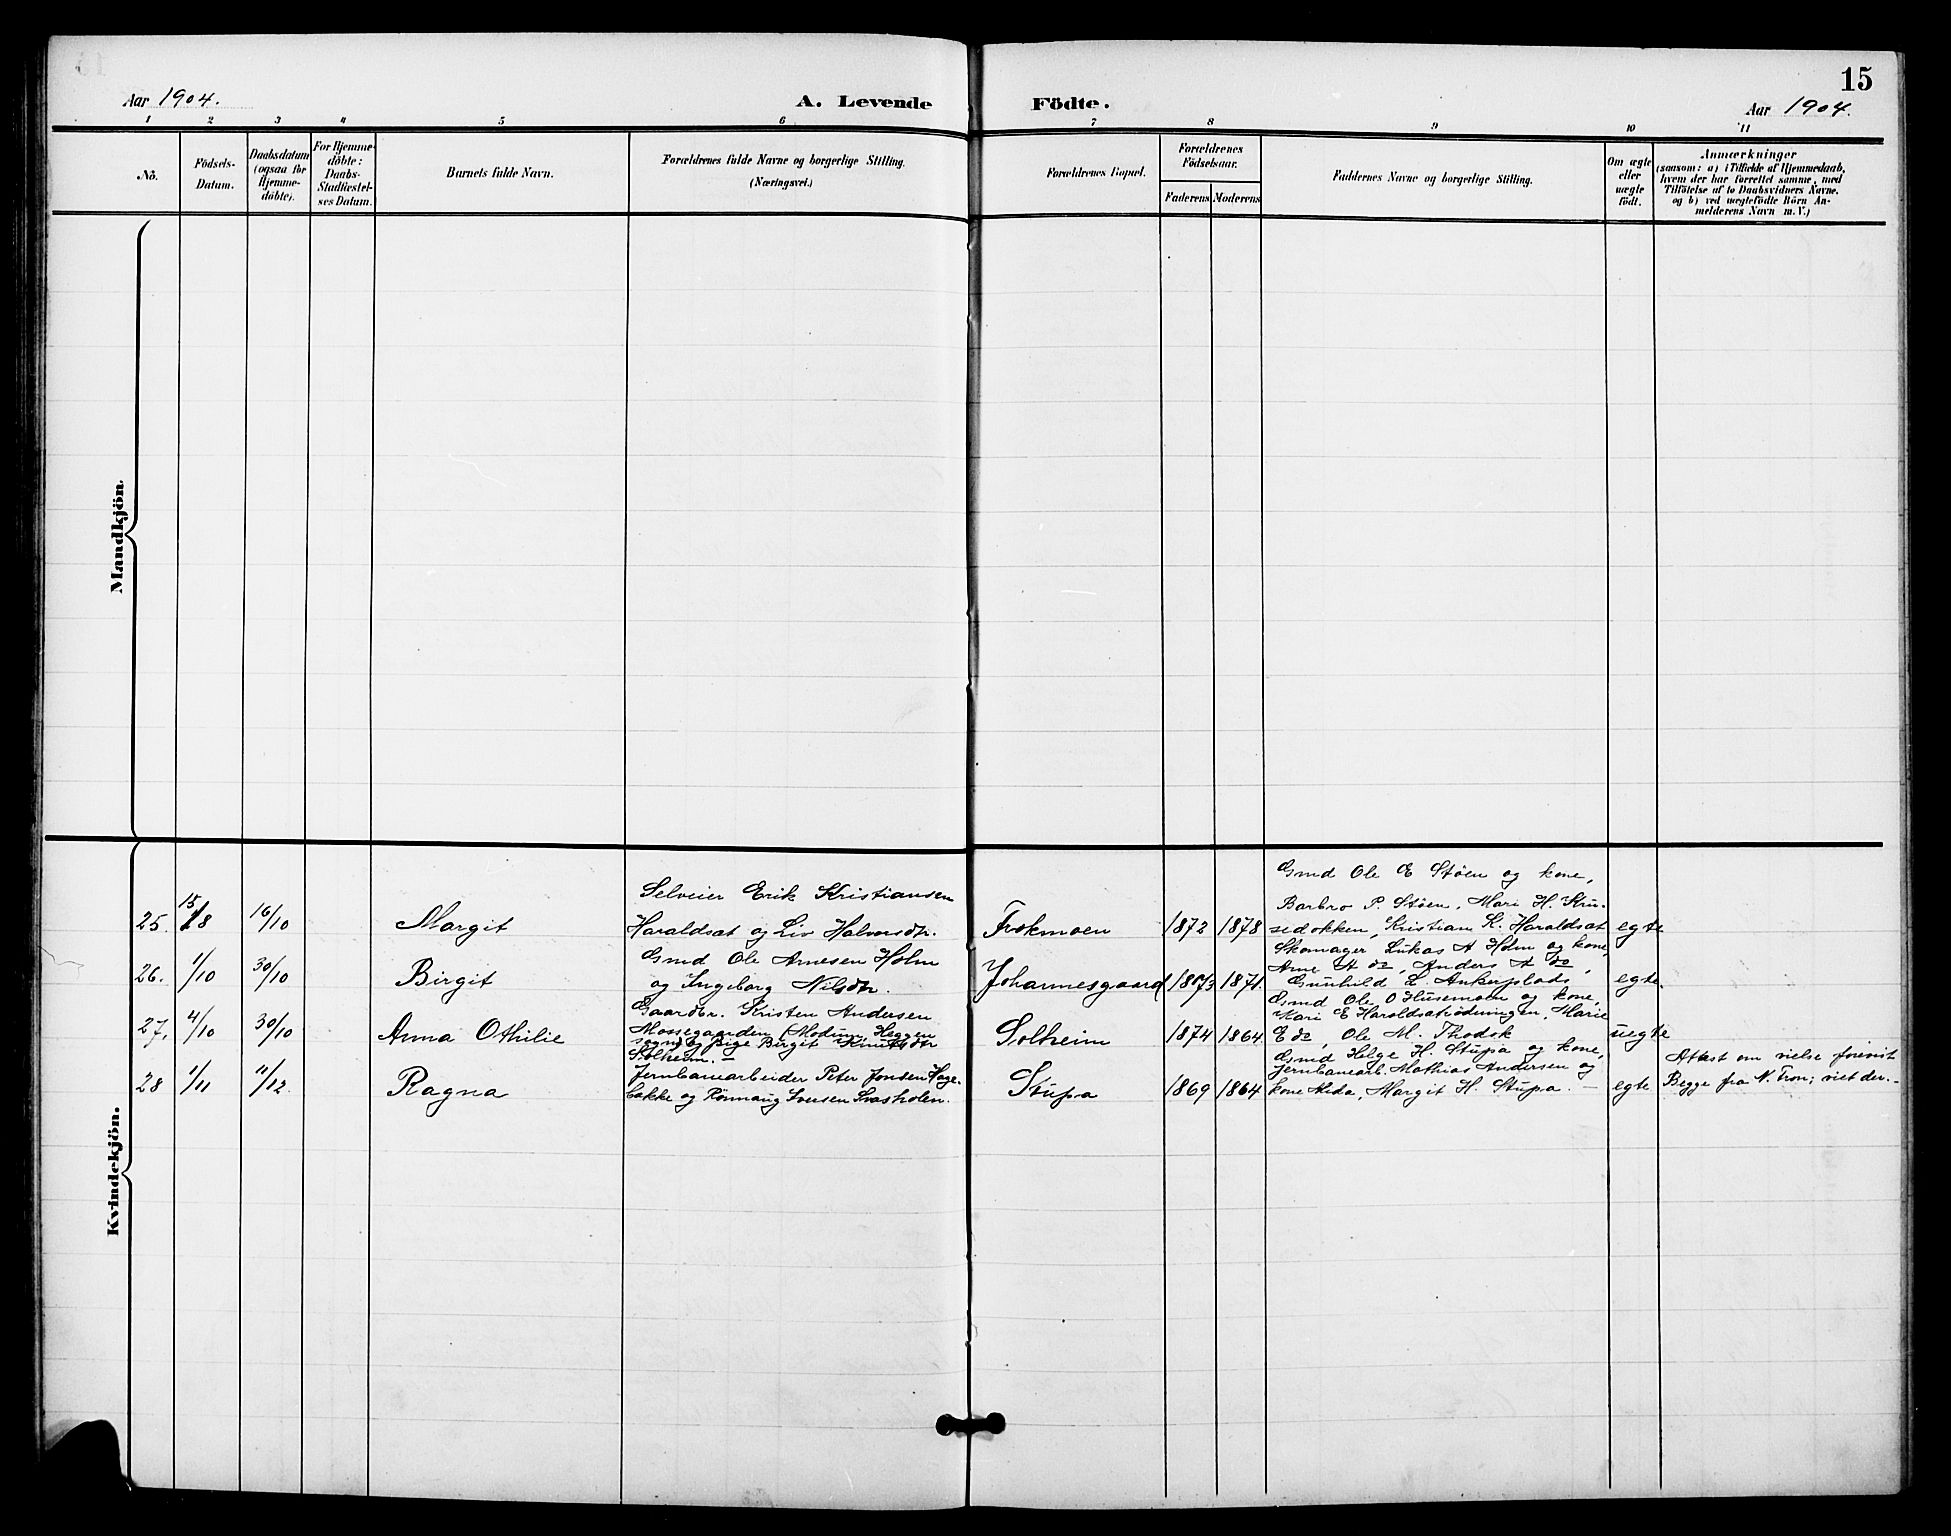 15
Aar 1904.
A. Levende
Födte.
Aar 1904.
1 2 3 4 5 6 7 8 9 10 11
Nô.
Födsels-
Datum.
Daabsdatum
(ogsaa for
Hjemme-
döbte).
For Hjemme-
döbte:
Daabs-
Stadfæstel-
ses Datum.
Barnets fulde Navn.
Forældrenes fulde Navne og borgerlige Stilling.
(Næringsvei.)
Forældrenes Bopæl.
Forældrenes
Födselsaar.
Faderens
Moderens
Faddernes Navne og borgerlige Stilling.
Om ægte
eller
uægte
födt.
Anmærkninger
(saasom: a) i Tilfælde af Hjemmedaab,
hvem der har forrettet samme, med
Tilföielse af to Daabsvidners Navne.
og b) ved uægtefödte Börn An-
melderens Navn m. V.)
Mandkjön.
Kvindekjön.
25. 15/8 16/10 Margit
Selveier Erik Kristiansen
Haraldsat og Liv Halvorsdtr.
Trokmoen 1872 1878
Gmd Ole E Støen og kone,
Barbro P. Støen, Mari H. Kru-
sedokken, Kristian K. Haraldsat
egte
26. 1/10 30/10 Birgit
Gmd Ole Arnesen Holm
og Ingeborg Nilsdtr.
Johannesgaard 1873 1871.
Skomager Lukas A Holm og kone,
Arne A do, Anders A do,
Gunhild L. Ankerplads
egte.
27. 4/10 30/10 Anna Othilie
Gaardbr. Kristen Andersen
Mossegaarden (Modum Heggen
sogn) og pige Birgit Knutsdtr
Solheim.
Solheim 1874 1864
Gmd Ole O Husemoen og kone,
Mari E Haroldsatrødningen, Marie
E do, Ole M. Thodsk
uegte
28 1/11 11/12. Ragna
Jernbanearbeider Peter Jonsen Hage-
bakke og Rönnaug Iversen Svasholen.
Stupa 1869 1864
Gmd Helge H. Stupa og kone,
Jernbanearb. Mathias Andersen og
kone Alida, Margit H. Stupa. —
egte
Attest om vielse forevist
Begge fra N. Fron; viet der. -